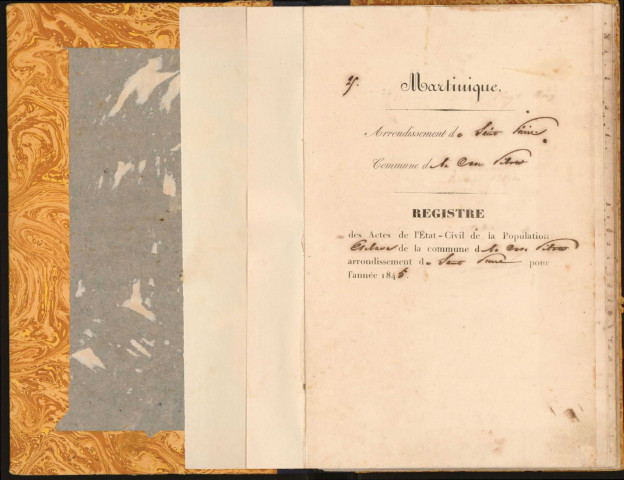 Martinique.
Arrondissement de Saint Pierre
Commune d
REGISTRE
des Actes de l'État-Civil de la Population
Esclave de la commune d
arrondissement de Saint Pierre pour
l'année 1845.